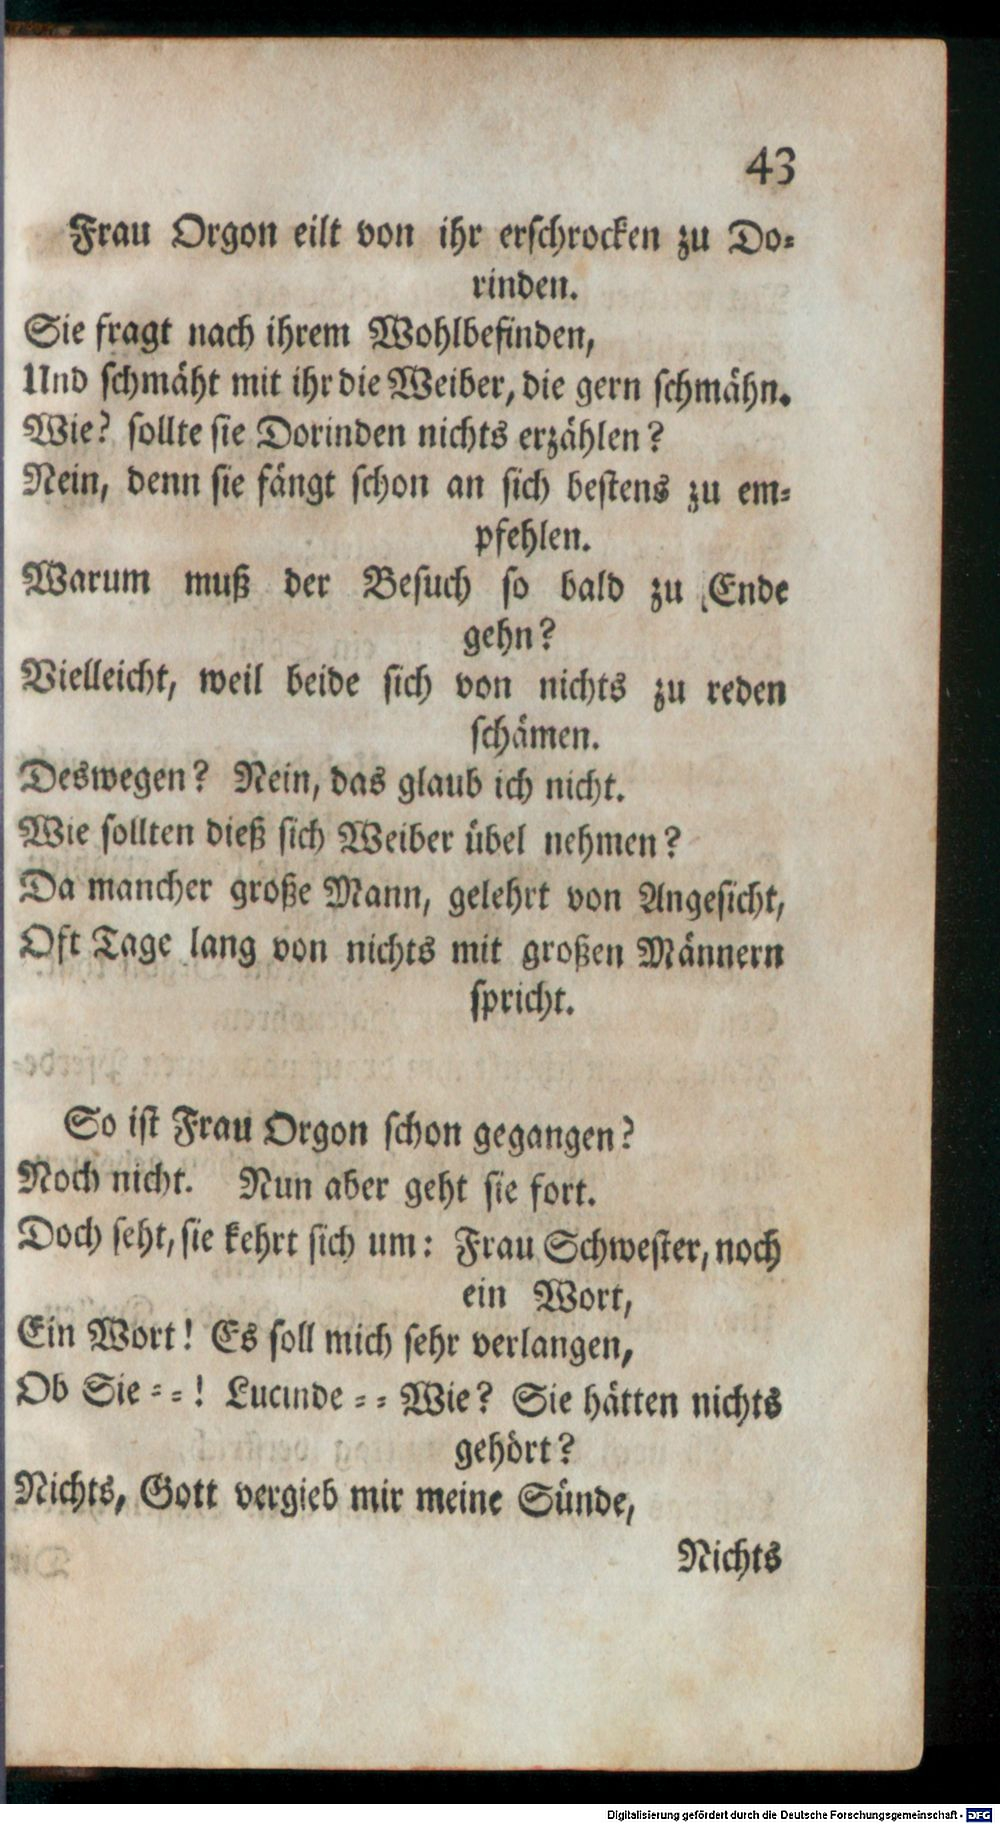 43
Frau Orgon eilt von ihr erschrocken zu Do-
rinden.
Sie fragt nach ihrem Wohlbefinden,
Und schmäht mit ihr die Weiber, die gern schmähn.
Wie? sollte sie Dorinden nichts erzählen?
Nein, denn sie fängt schon an sich bestens zu em-
pfehlen.
Warum muß der Besuch so bald zu Ende
gehn?
Vielleicht, weil beide sich von nichts zu reden
schämen.
Deswegen? Nein, das glaub ich nicht.
Wie sollten dieß sich Weiber übel nehmen?
Da mancher große Mann, gelehrt von Angesicht,
Oft Tage lang von nichts mit großen Männern
spricht.
So ist Frau Orgon schon gegangen?
Noch nicht. Nun aber geht sie fort.
Doch seht, sie kehrt sich um: Frau Schwester, noch
ein Wort,
Ein Wort! Es soll mich sehr verlangen,
Ob Sie = =! Lucinde = = Wie? Sie hätten nichts
gehört?
Nichts, Gott vergieb mir meine Sünde,
Nichts
Digitalisierung gefördert durch die Deutsche Forschungsgemeinschaft - DFG